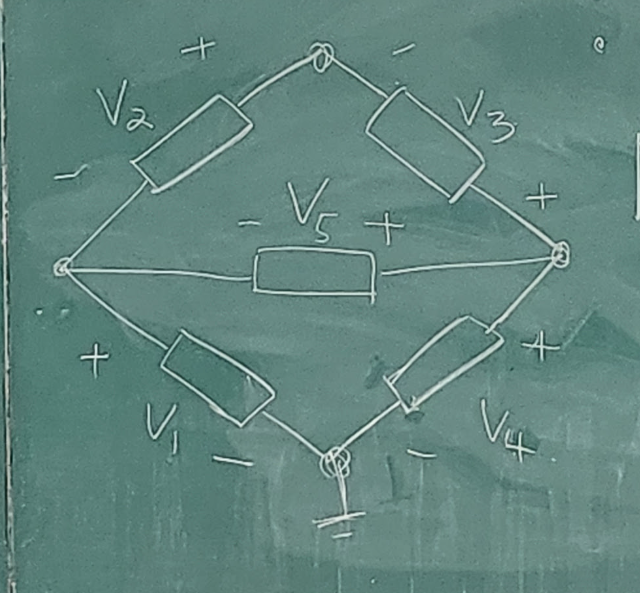 + -
V2 V3
- +
- V5 +
+ +
V1 V4
- -